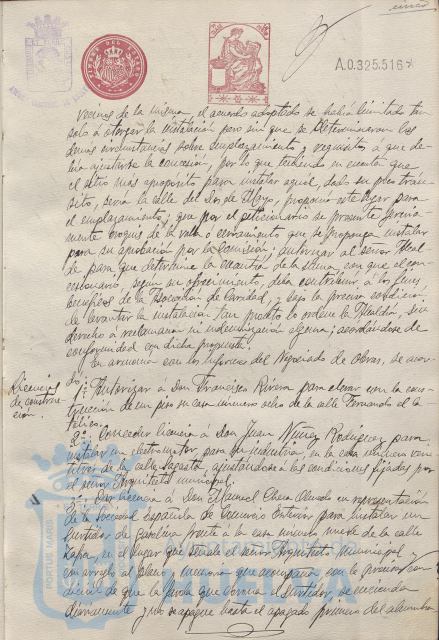 cinco
A.0.325.516*
vecinos de la misma, el acuerdo adoptado se había limitado tan
solo a otorgar la instalación pero sin que se determinaran las
demas circunstancias sobre emplazamiento y requisitos a que de-
bía ajustarse la concesión, por lo que teniendo en cuenta que
el sitio mas apropósito para instalar aquel, dado su poco trán-
sito, sería la calle del Dos de Mayo, proponía este lugar para
el emplazamiento; que por el peticionario se presente previa-
mente croquis de la valla o cerramiento que se proponga instalar
para su aprobación por la Comisión; autorizar al señor Alcal-
de para que determine la cuantía de la suma con que el con-
cesionario, según su ofrecimiento, deba contribuir a los fines
benéficos de la Asociación de Caridad, y bajo la precisa condición
de levantar la instalación tan pronto lo ordene la Alcaldía, sin
derecho a reclamación ni indemnización alguna; acordándose de
conformidad con dicha propuesta.
En armonía con los informes del Negociado de Obras, se acor-
Licencias
de construc-
ción
dó:
1º. Autorizar a Don Francisco Rivera para elevar con la cons-
trucción de un piso su casa número ocho de la calle Fernando el Ca-
tólico.
2º. Conceder licencia a Don Juan Núñez Rodríguez para
instalar un electromotor, para su industria, en la casa número vein-
titres de la calle Sagasta, ajustándose a las condiciones fijadas por
el señor Arquitecto municipal.
3º. Dar licencia a Don Manuel Olmedo en representación
de la Sociedad Española de Comercio Exterior para instalar un
surtidor de gasolina frente a la casa número nueve de la calle
en el lugar que señale el señor Arquitecto Municipal y
con arreglo al plano y memoria que acompaña, con la precisa con-
dición de que la farola que corona el surtidor, se encienda
diariamente y no se apague hasta el apagado primero del alumbra-